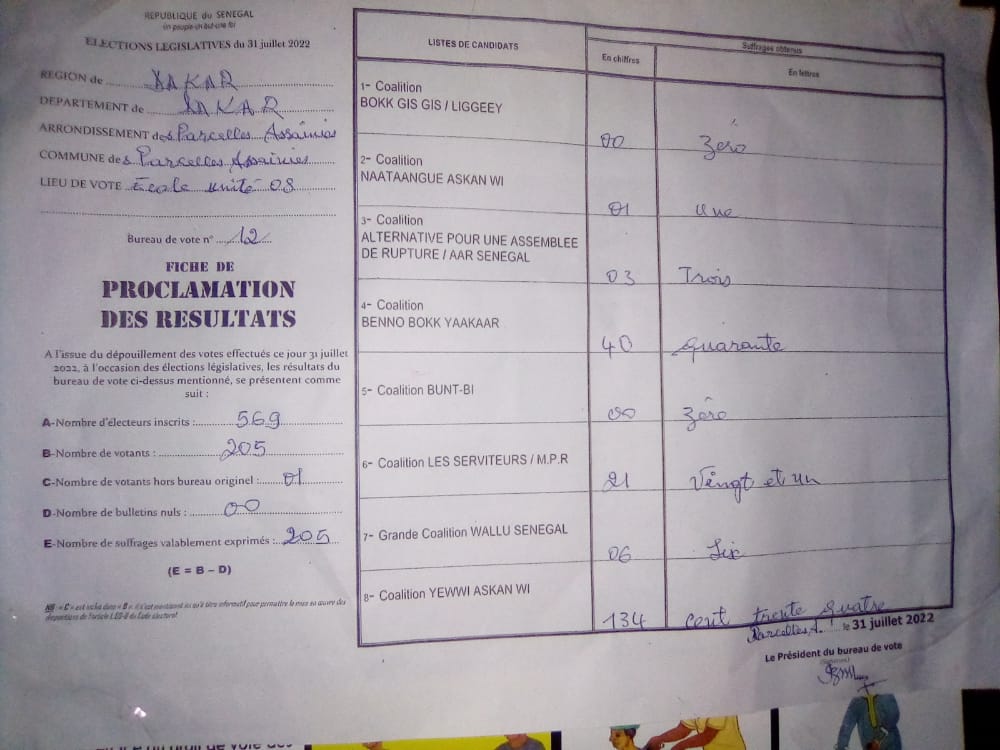 REPUBLIQUE du SENEGAL
Un peuple-un but-une foi
ELECTIONS LEGISLATIVES du 31 juillet 2022
REGION de DAKAR
DEPARTEMENT de DAKAR
ARRONDISSEMENT des Parcelles Assainies
COMMUNE des Parcelles Assainies
LIEU DE VOTE Ecole unité 08
Bureau de vote n° 12
FICHE DE
PROCLAMATION
DES RESULTATS
A l'issue du dépouillement des votes effectués ce jour 31 juillet
2022, à l'occasion des élections législatives, les résultats du
bureau de vote ci-dessus mentionné, se présentent comme
suit :
A-Nombre d'électeurs inscrits : 569
B-Nombre de votants : 205
C-Nombre de votants hors bureau originel : 01
D-Nombre de bulletins nuls : 00
E-Nombre de suffrages valablement exprimés : 205
(E = B – D)
NB : « C » est inclus dans « B », il n'est mentionné ici qu'à titre informatif pour permettre la mise en œuvre des
dispositions de l'article L.69-II du Code électoral
LISTES DE CANDIDATS
Suffrages obtenus
En chiffres
En lettres
1- Coalition
BOKK GIS GIS / LIGGEEY
00 Zéro
2- Coalition
NAATAANGUE ASKAN WI
01 une
3- Coalition
ALTERNATIVE POUR UNE ASSEMBLEE
DE RUPTURE / AAR SENEGAL
03 Trois
4- Coalition
BENNO BOKK YAAKAAR
40 quarante
5- Coalition BUNT-BI
00 Zéro
6- Coalition LES SERVITEURS / M.P.R
21 Vingt et un
7- Grande Coalition WALLU SENEGAL
06 Six
8- Coalition YEWWI ASKAN WI
134 cent trente quatre
Parcelles A. le 31 juillet 2022
Le Président du bureau de vote
(Signature)